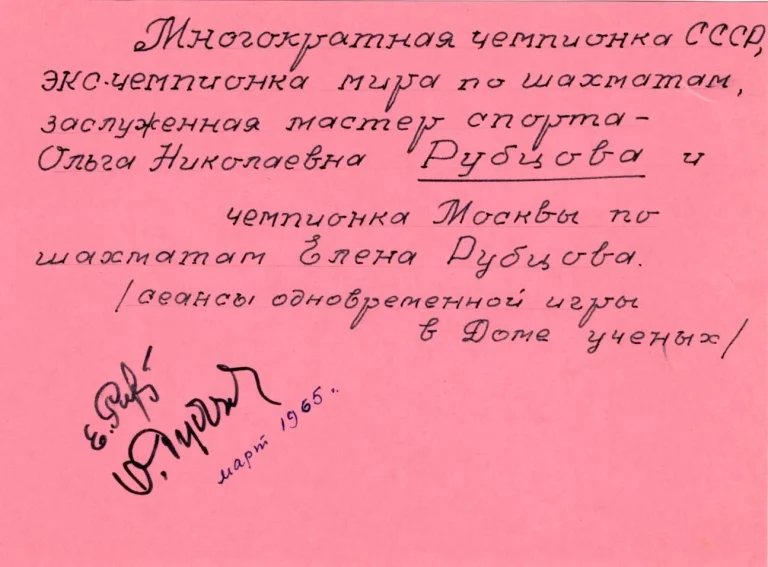 Многократная чемпионка СССР,
экс-чемпионка мира по шахматам,
заслуженная мастер спорта –
Ольга Николаевна Рубцова и
чемпионка Москвы по
шахматам Елена Рубцова.
/сеансы одновременной игры
в Доме ученых/
Е. Руб
О. Рубц
март 1965 г.